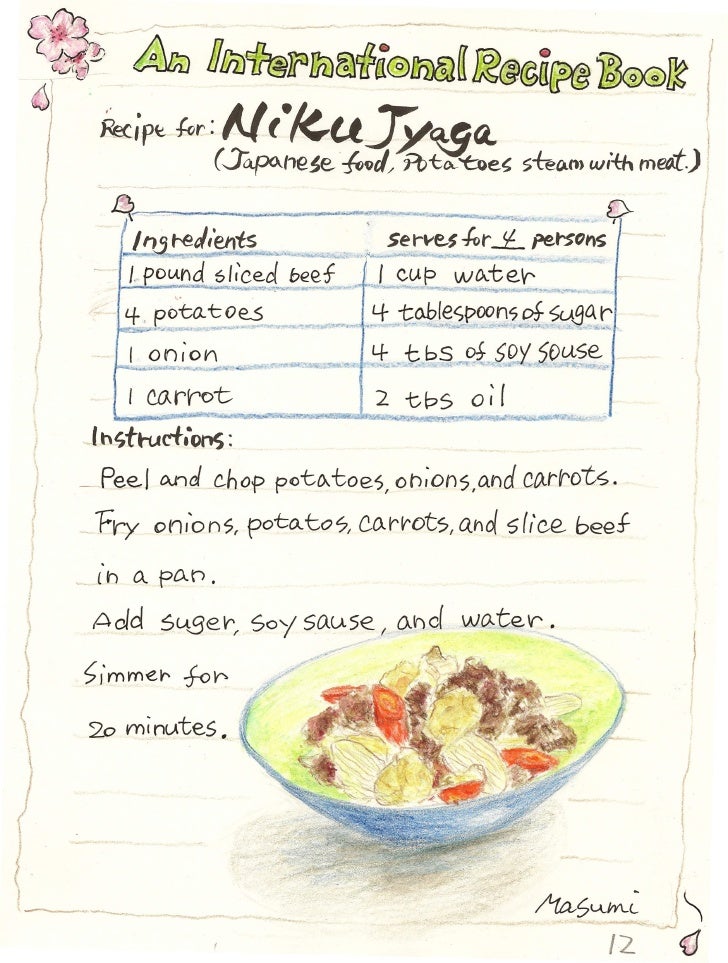 An International Recipe Book
Recipe for: Niku Jyaga
(Japanese food, Potatoes steam with meat.)
Ingredients serves for 4 persons
1 pound sliced beef 1 cup water
4 potatoes 4 tablespoons of sugar
1 onion 4 tbs of soy souse
1 carrot 2 tbs oil
Instructions:
Peel and chop potatoes, onions, and carrots.
Fry onions, potatos, carrots, and slice beef
in a pan.
Add suger, soy sause, and water.
Simmer for
20 minutes.
Masumi
12